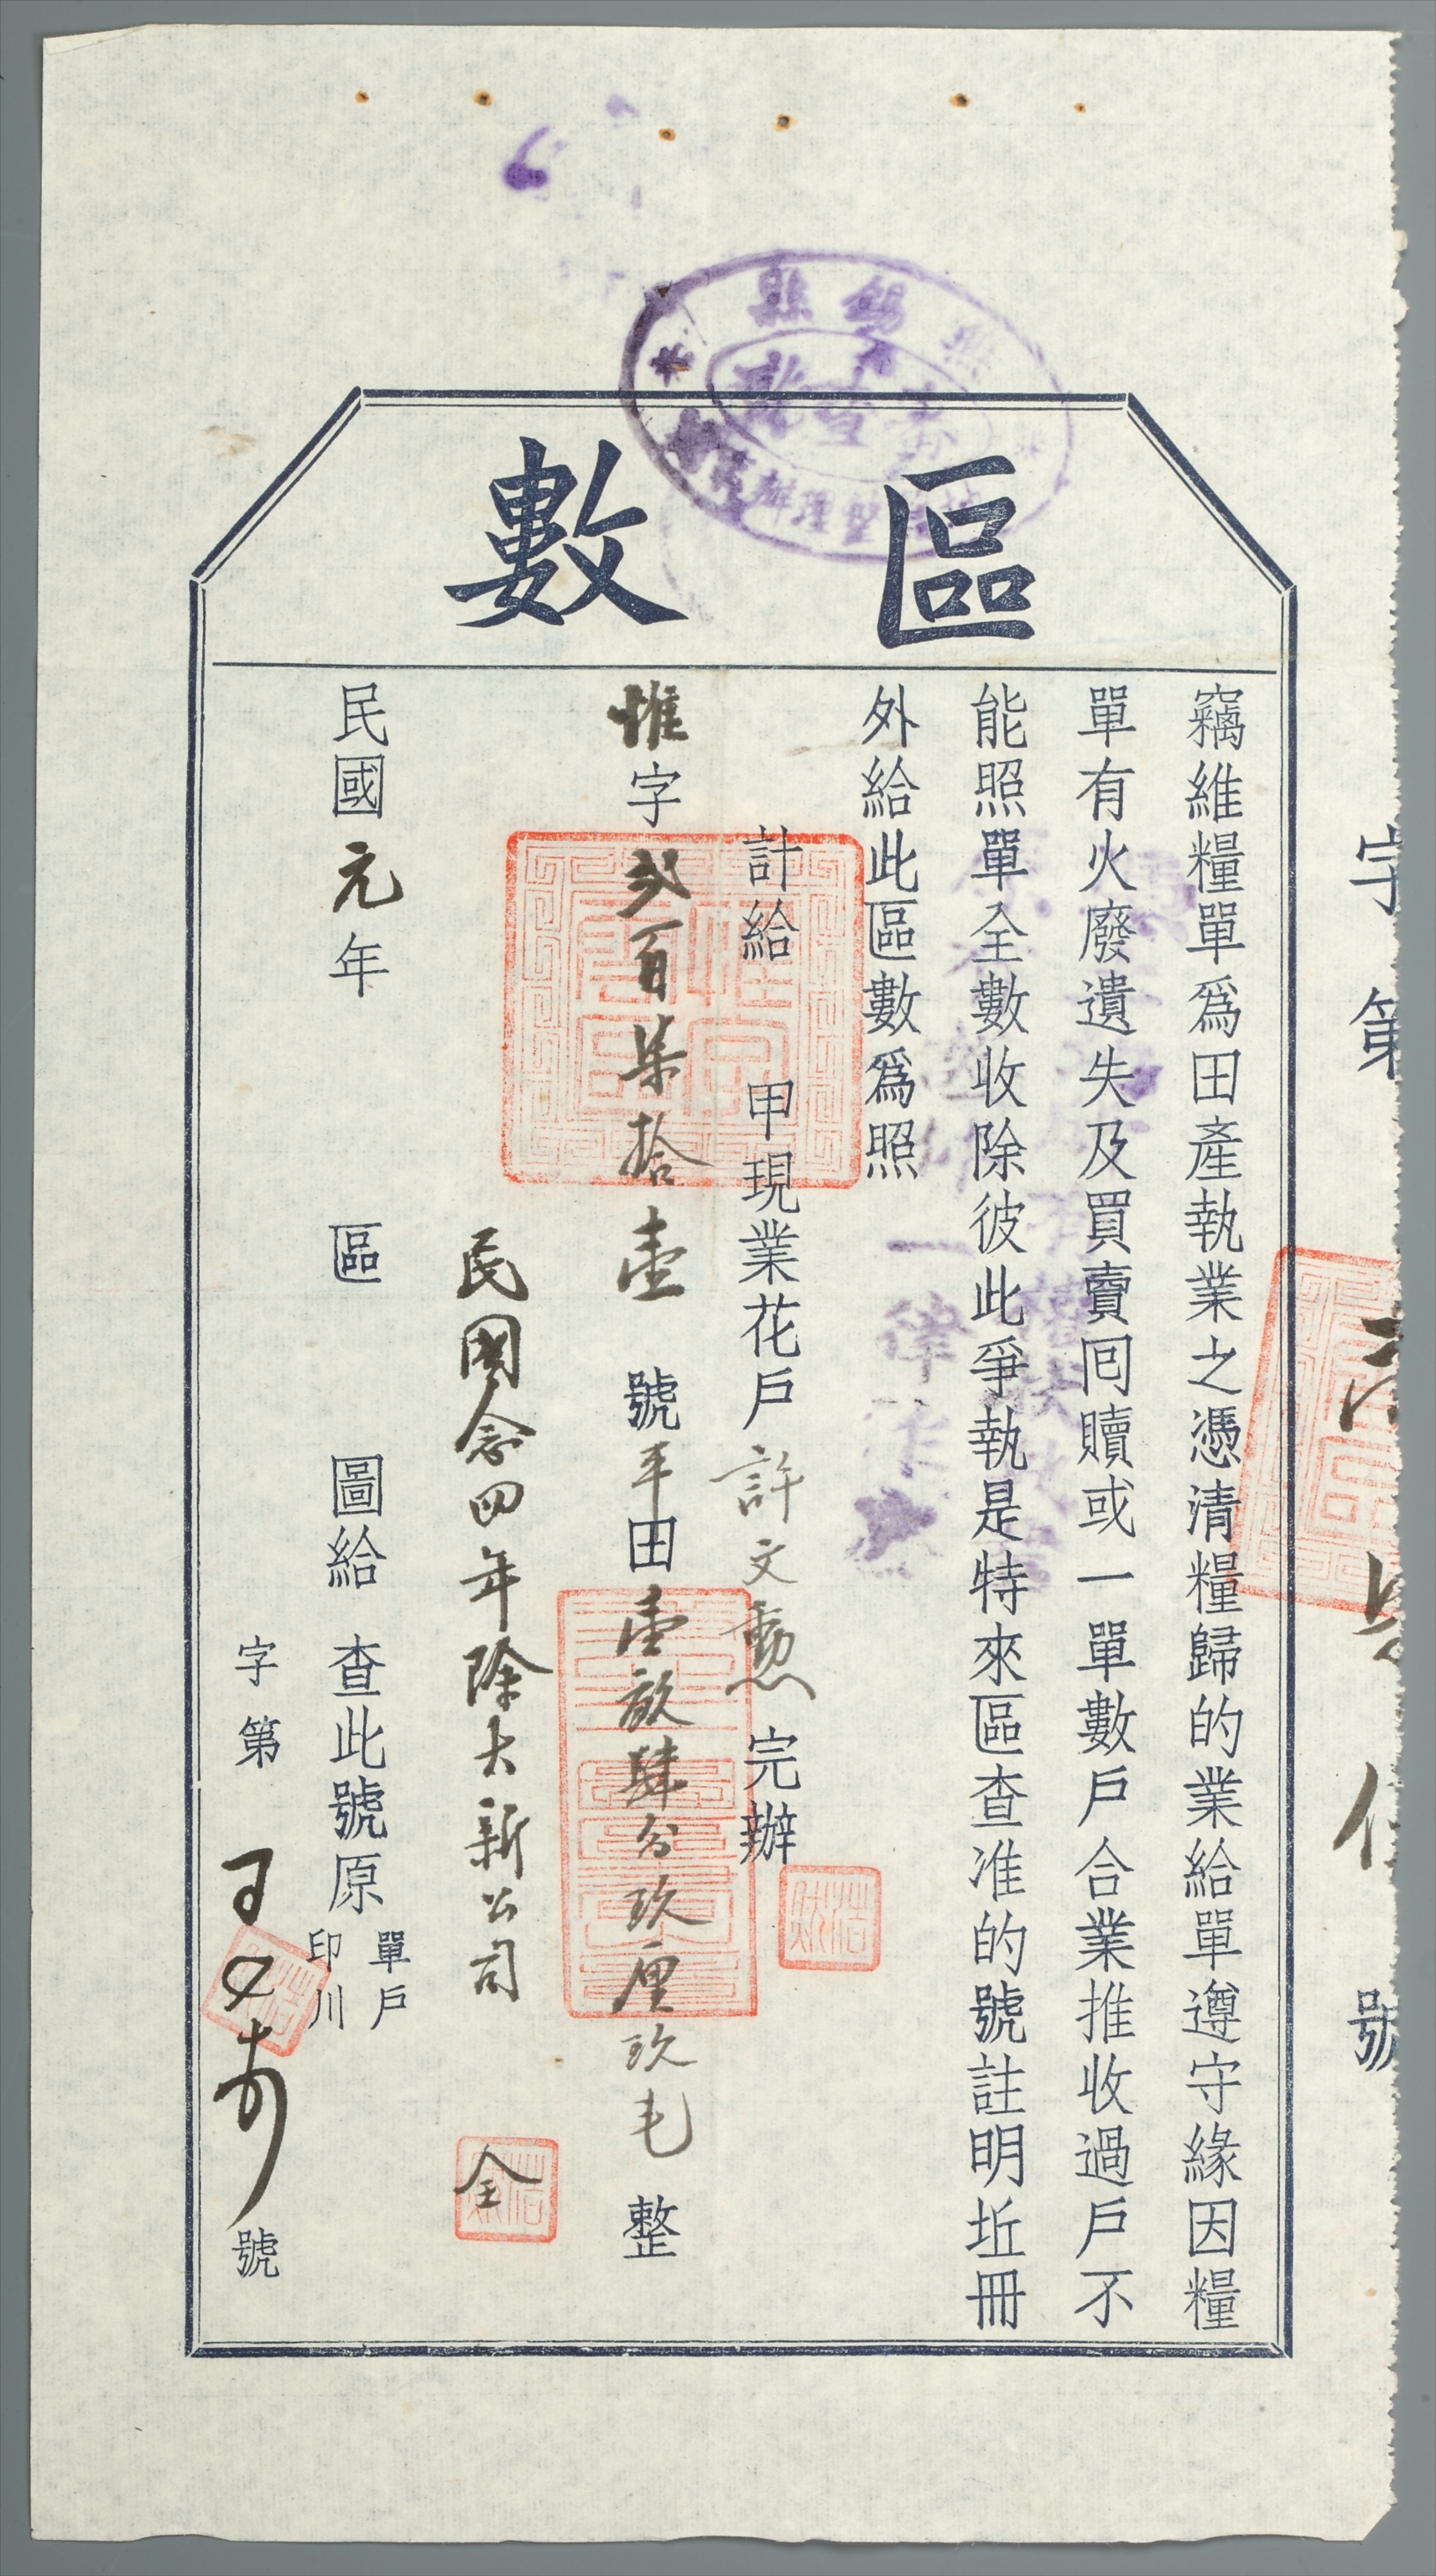 區數
字第
號
竊維糧單爲田產執業之憑清糧歸的業給單遵守緣因糧
單有火廢遺失及買賣囘贖或一單數戶合業推收過戶不
能照單全數收除彼此爭執是特來區查准的號註明坵冊
外給此區數爲照
計給 甲現業花戶許文勳 完辦
惟字弍百柒拾壹 號平田壹畝肆分玖厘玖毛 整
民國念四年除大新公司 全
民國元年 區 圖給 查此號原 單戶 印川
字第 號
錫縣
一律作